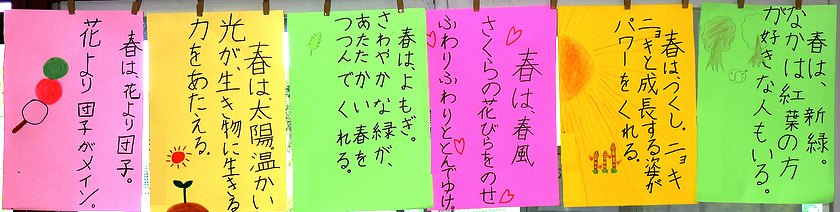 春は、新緑。
なかは紅葉の方
が好きな人もいる。
春はつくし。ニョキ
ニョキと成長する姿が
パワーをくれる。
春は、春風
さくらの花びらをのせ
ふわりふわりととんでゆけ。
春はよもぎ。
さわやかな緑が、
あたたかい春を
つつんでくれる。
春は、太陽温かい
光が、生き物に生きる
力をあたえる。
春は、花より団子。
花より団子がメイン。